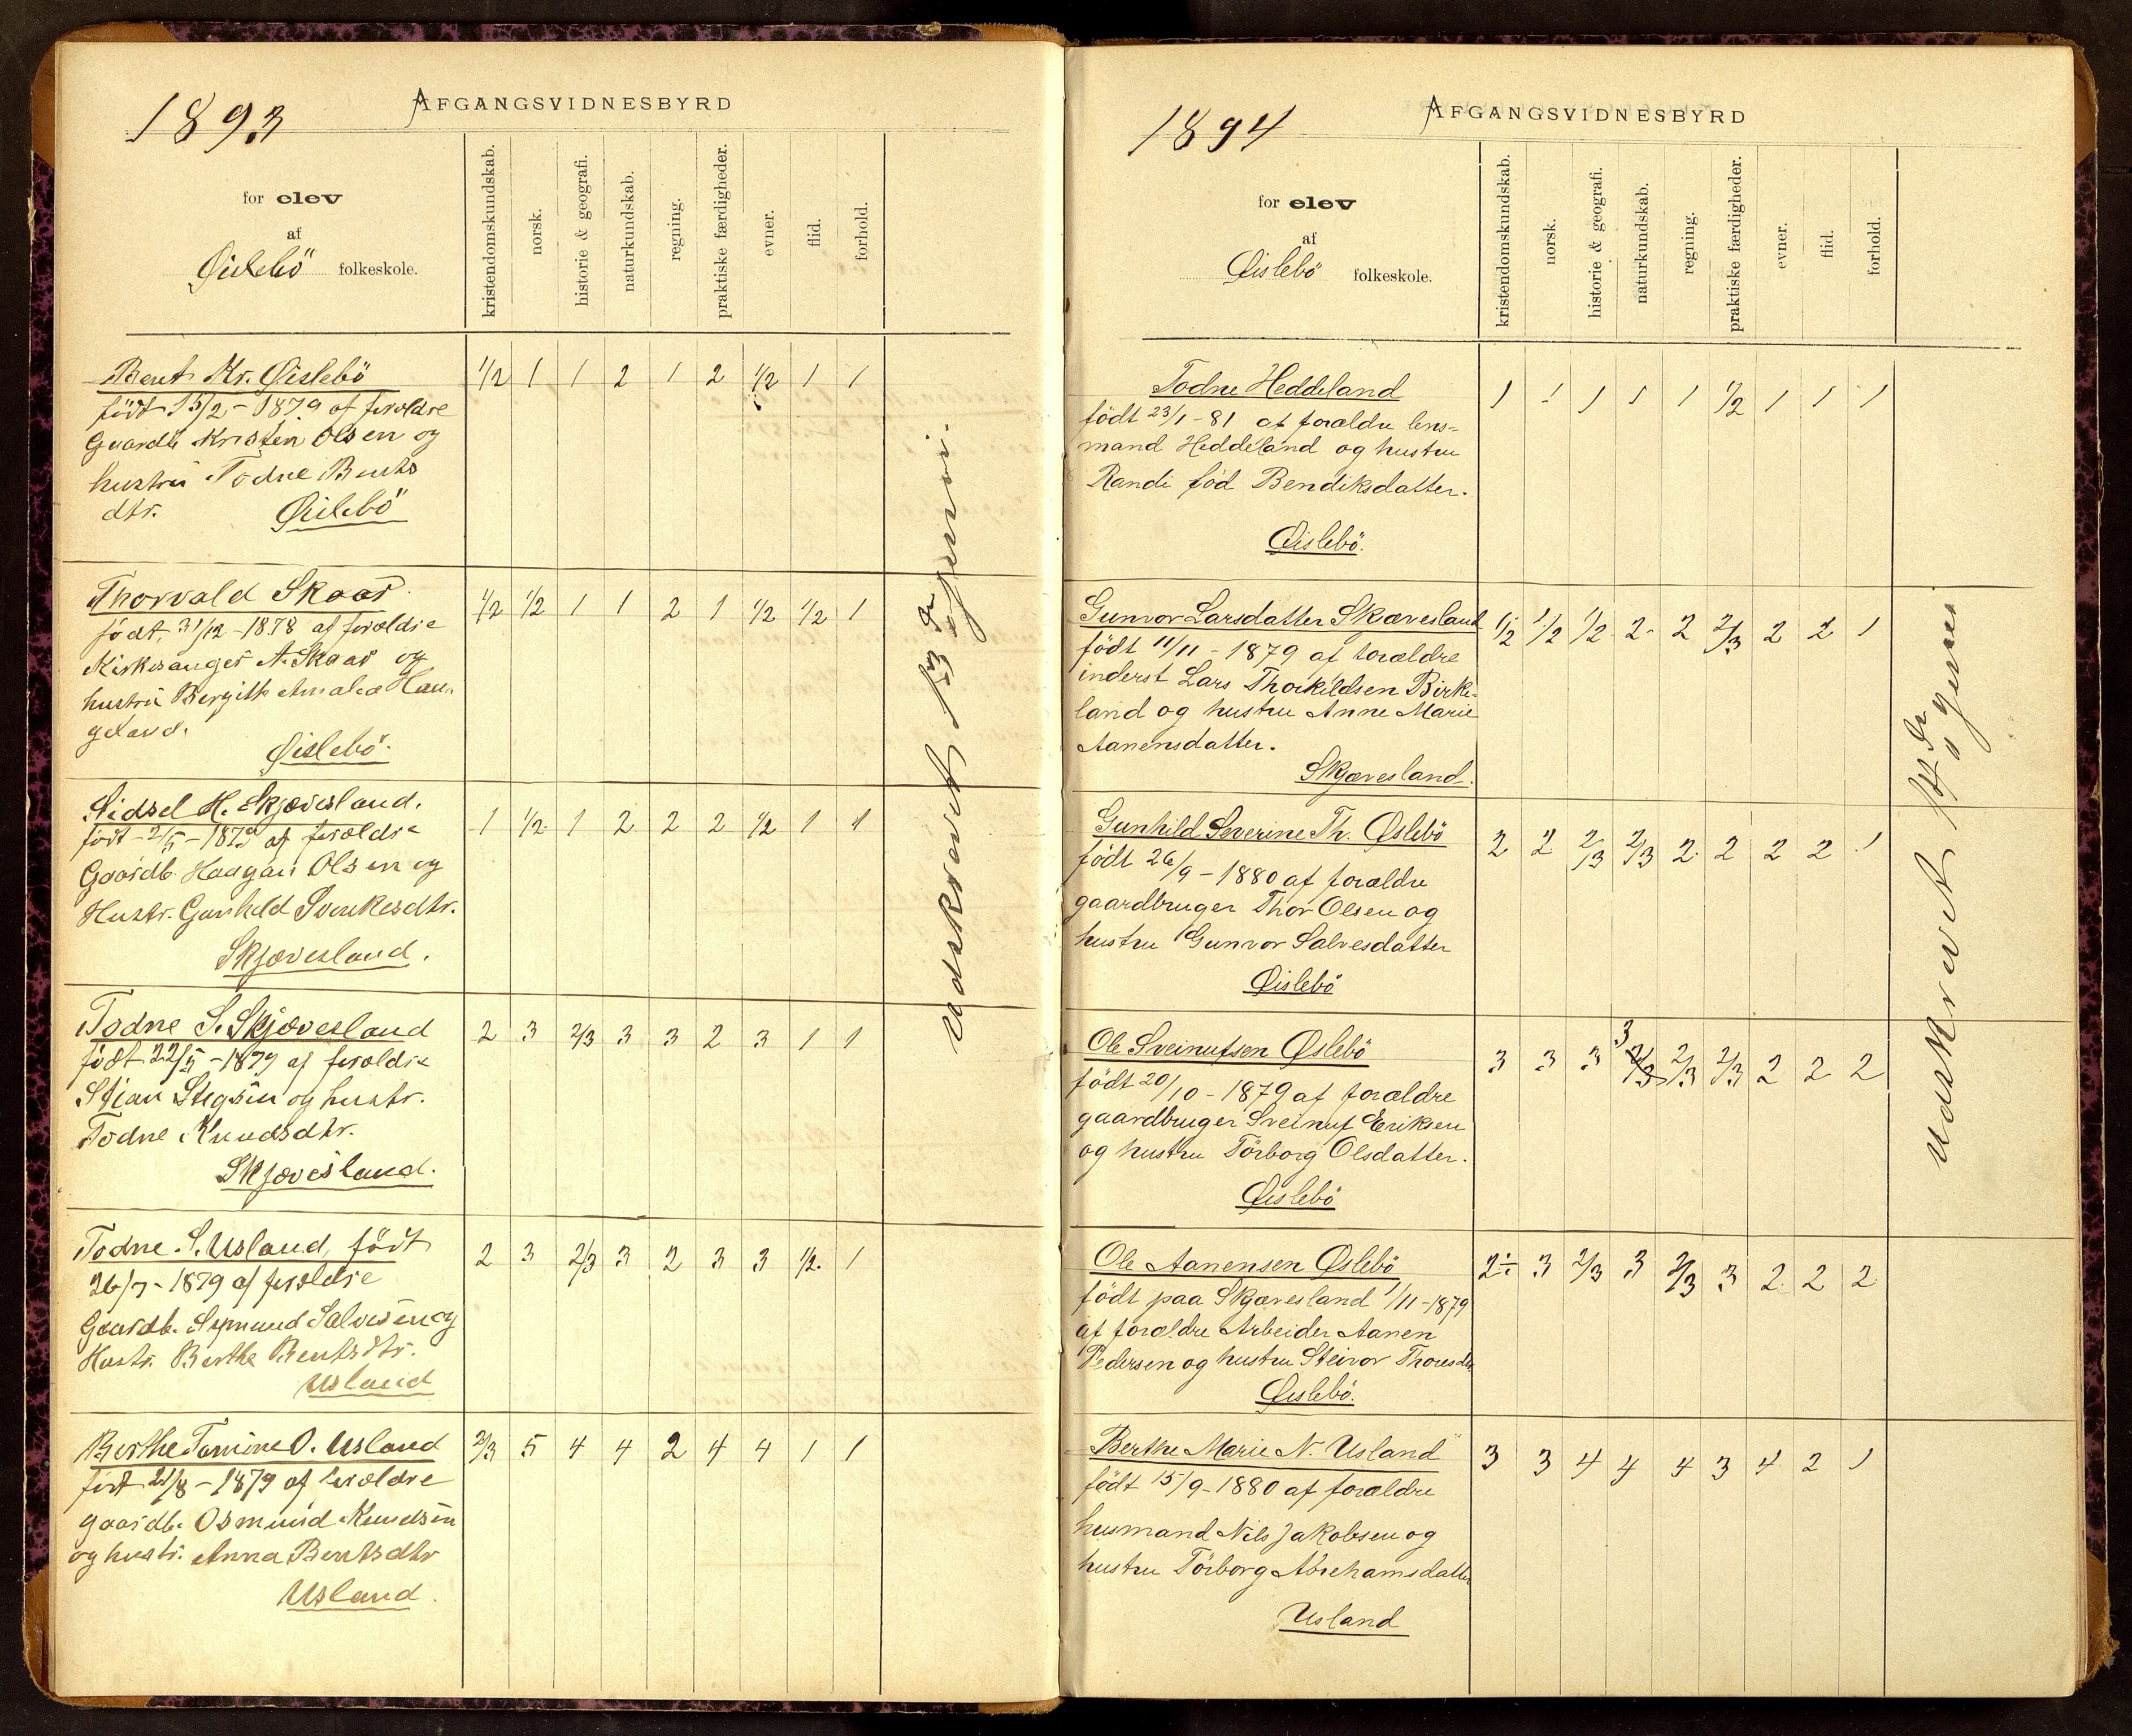 1893
AFGANGSVIDNESBYRD
for elev
af
Øislebö folkeskole.
kristendomskundskab.
norsk.
historie & geografi.
naturkundskab.
regning.
praktiske færdigheder.
evner.
flid.
forhold.
Bent Kr. Øislebö 1/2 1 1 2 1 2 1/2 1 1
födt 15/2 - 1879 af forældre
Gaardb. Kristen Olsen og
hustru Todne Bents
dtr. Øislebö
Thorvald Skaar 1/2 1/2 1 1 2 1 1/2 1/2 1
födt 31/12 - 1878 af forældre
Kirkesanger A. Skaar og
hustru Bergith Amalea Hau-
geland.
Øislebö.
Sidsel H. Skjævesland. 1 1/2 1 2 2 2 1/2 1 1
födt 2/5 - 1879 af forældre
Gaardb. Haagan Olsen og
Hustr. Gunhild Svenkesdtr.
Skjævesland.
Todne S. Skjævesland 2 3 2/3 3 3 2 3 1 1
födt 22/5 - 1879 af forældre
Stian Stegsen og hustr.
Todne Knudsdtr.
Skjævesland.
Todne S. Usland, födt 2 3 2/3 3 2 3 3 1/2. 1
26/7 - 1879 af forældre
Gaardb. Sigmund Salvesen og
Hustr. Berthe Bentsdtr.
Usland
Berthe Tomine O. Usland 2/3 5 4 4 2 4 4 1 1
födt 21/8 - 1879 af forældre
gaardb. Osmund Knudsen
og hustr. Anna Bentsdtr
Usland.
Udskrevet 13de januar.
1894
AFGANGSVIDNESBYRD
for elev
af
Øislebö folkeskole.
kristendomskundskab.
norsk.
historie & geografi.
naturkundskab.
regning.
praktiske færdigheder.
evner.
flid.
forhold.
Todne Heddeland 1 1 1 1 1 1/2 1 1 1
födt 23/1 - 81 af forældre lens-
mand Heddeland og hustru
Randi född Bendiksdatter.
Øislebö.
Gunvor Larsdatter Skævesland 1/2 1/2 1/2 2 2 2/3 2 2 1
födt 11/11 - 1879 af forældre
inderst Lars Thorkildsen Birke-
land og hustru Anne Marie
Aanensdatter.
Skjævesland.
Gunhild Severine Th. Øslebö 2 2 2/3 2/3 2 2 2 2 1
födt 26/9 - 1880 af forældre
gaardbruger Thor Olsen og
hustru Gunvor Salvesdatter
Øislebö
Ole Sveinufsen Øslebö 3 3 3 3 2/3 2/3 2/3 2 2 2
födt 20/10 - 1879 af forældre
gaardbruger Sveinuf Eriksen
og hustru Törborg Olsdatter.
Øislebö
Ole Aanensen Øslebö 2÷ 3 2/3 3 2/3 3 2 2 2
födt paa Skjævesland 1/11 - 1879
af forældre Arbeider Aanen
Pedersen og hustru Steinvor Thoresdtr
Øislebö.
Berthe Marie N. Usland 3 3 4 4 4 3 4 2 1
födt 15/9 - 1880 af forældre
husmand Nils Jakobsen og
hustru Törborg Abrehamsdatter
Usland
Udskrevet